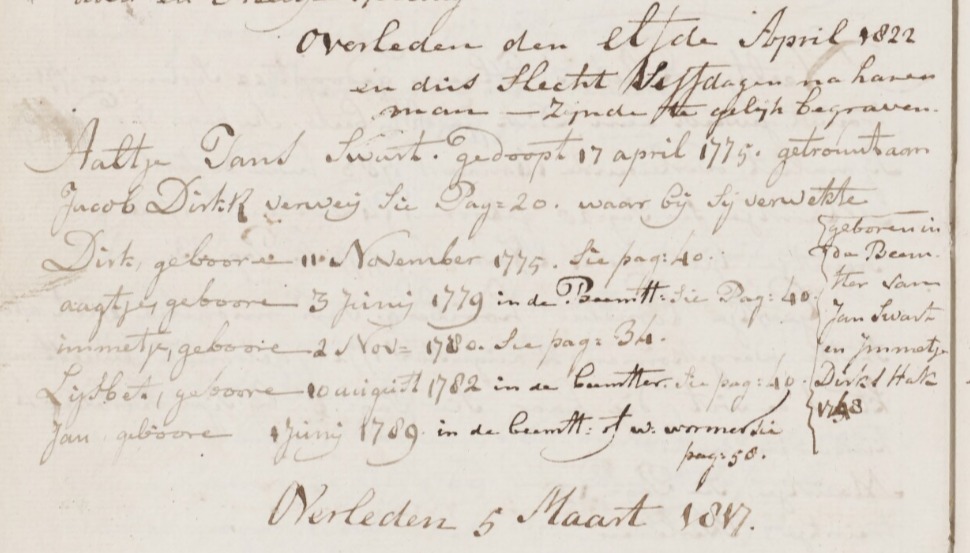 Overleden den elfde April 1822
en dus slecht Vyfdagen na haren
man — Zijnde te gelijk begraven.
Aaltje Jans Swart. gedoopt 17 april 1775. getrouwt aan
Jacob Dirksz verweij Sie Pag= 20. waar bij Sij verwekte
Dirk, geboore 11 November 1775. Sie pag: 40.
aagtje, geboore 3 Junij 1779 in de Beemtt: Sie Pag: 40.
immetje, geboore 2 Nov= 1780. Sie pag= 34.
Lijsbet, geboore 10 august 1782 in de beemtter. Sie pag: 40.
Jan geboore 1 Junij 1789. in de beemtt: of w: wormer Sie
pag: 58.
geboren in
de Beem-
ster van
Jan Swart
en Jmmetje
Dirks Hak
1748
Overleden 5 Maart 1817.